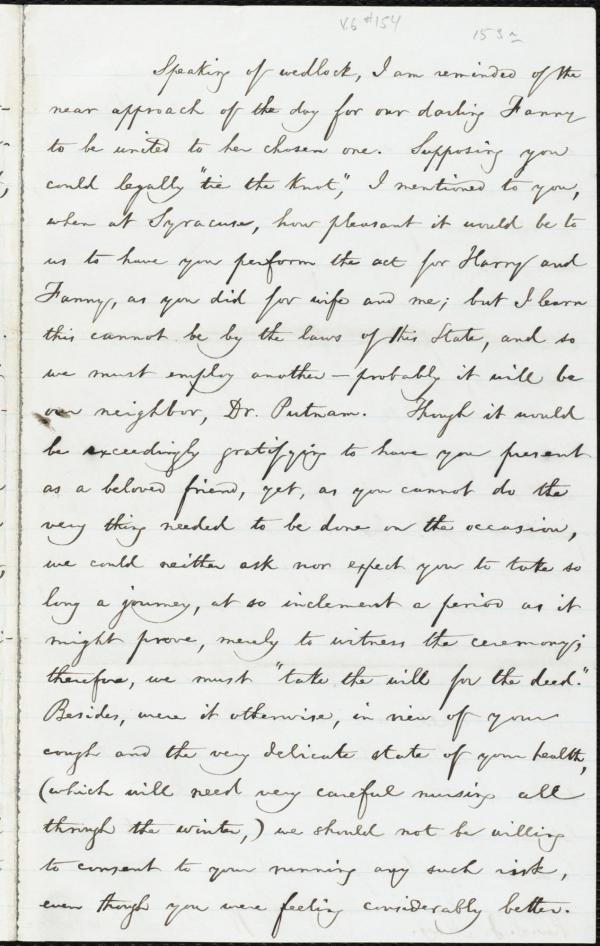 V.6 #154
153
Speaking of wedlock, I am reminded of the
near approach of the day for our darling Fanny
to be united to her chosen one. Supposing you
could legally "tie the knot," I mentioned to you,
when at Syracuse, how pleasant it would be to
us to have you perform the act for Harry and
Fanny, as you did for wife and me; but I learn
this cannot be by the laws of this State, and so
we must employ another — probably it will be
our neighbor, Dr. Putnam. Though it would
be exceedingly gratifying to have you present
as a beloved friend, yet, as you cannot do the
very thing needed to be done on the occasion,
we could neither ask nor expect you to take so
long a journey, at so inclement a period as it
might prove, merely to witness the ceremony;
therefore, we must "take the will for the deed."
Besides, were it otherwise, in view of your
cough and the very delicate state of your health,
(which will need very careful nursing all
through the winter,) we should not be willing
to consent to your running any such risk,
even though you were feeling considerably better.